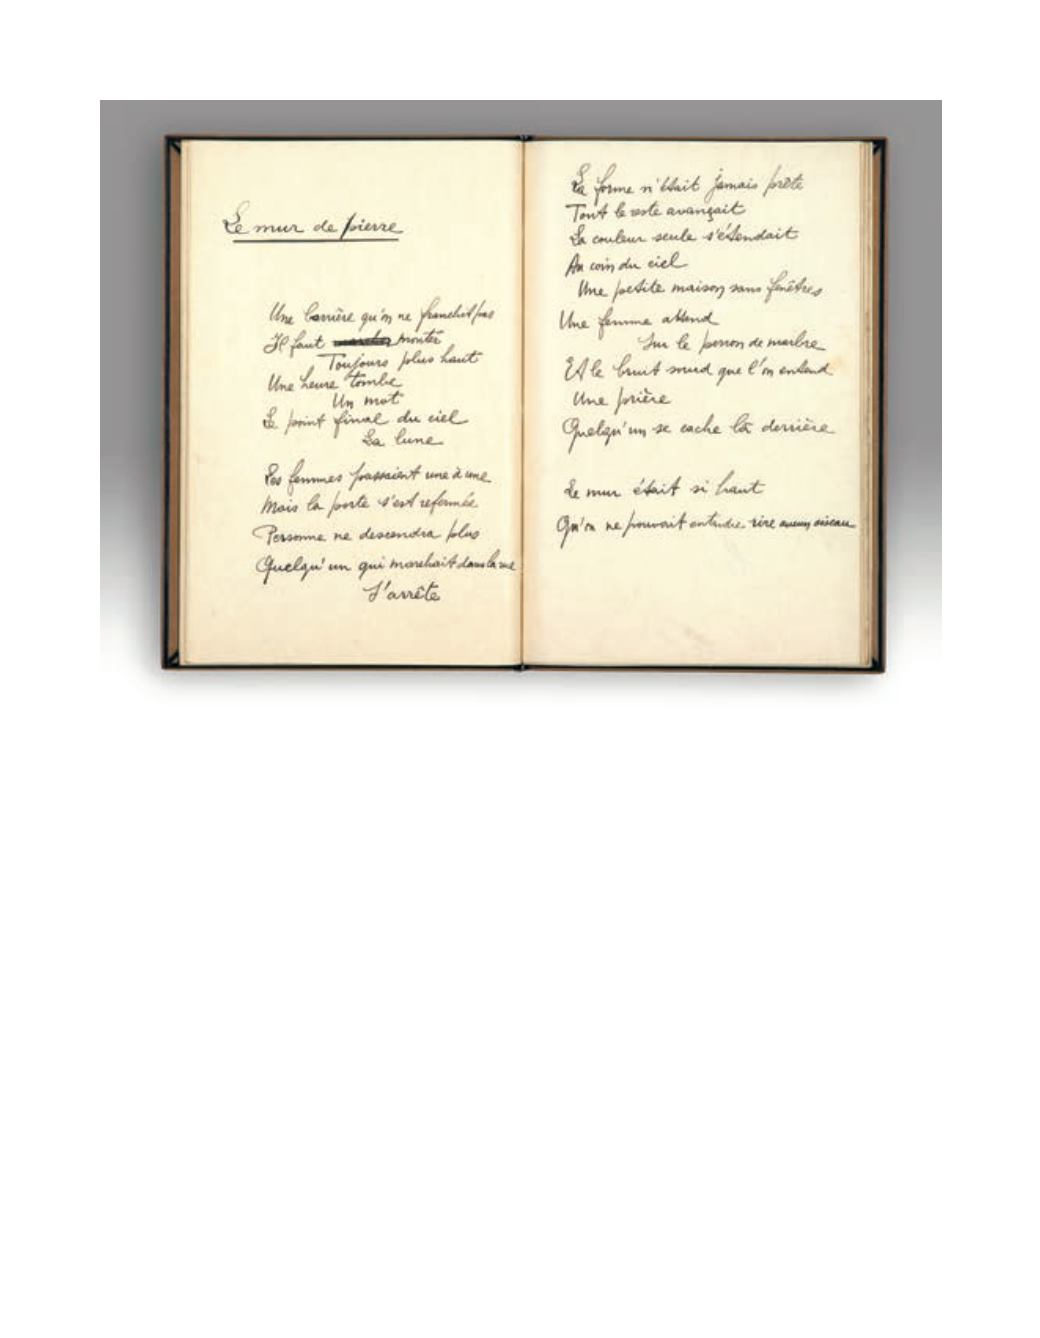 Le mur de pierre
Une barrière qu'on ne franchit pas
Il faut monter
Toujours plus haut
Une heure tombe
Un mot
Le point final du ciel
La lune
Les femmes passaient une à une
Mais la porte s'est refermée
Personne ne descendra plus
Quelqu'un qui marchait dans la rue
S'arrête
La forme n'était jamais prête
Tout le reste avançait
La couleur seule s'étendait
Au coin du ciel
Une petite maison sans fenêtres
Une femme attend
Sur le perron de marbre
Et le bruit sourd que l'on entend
Une prière
Quelqu'un se cache là derrière
Le mur était si haut
Qu'on ne pouvait entendre rire aucun oiseau